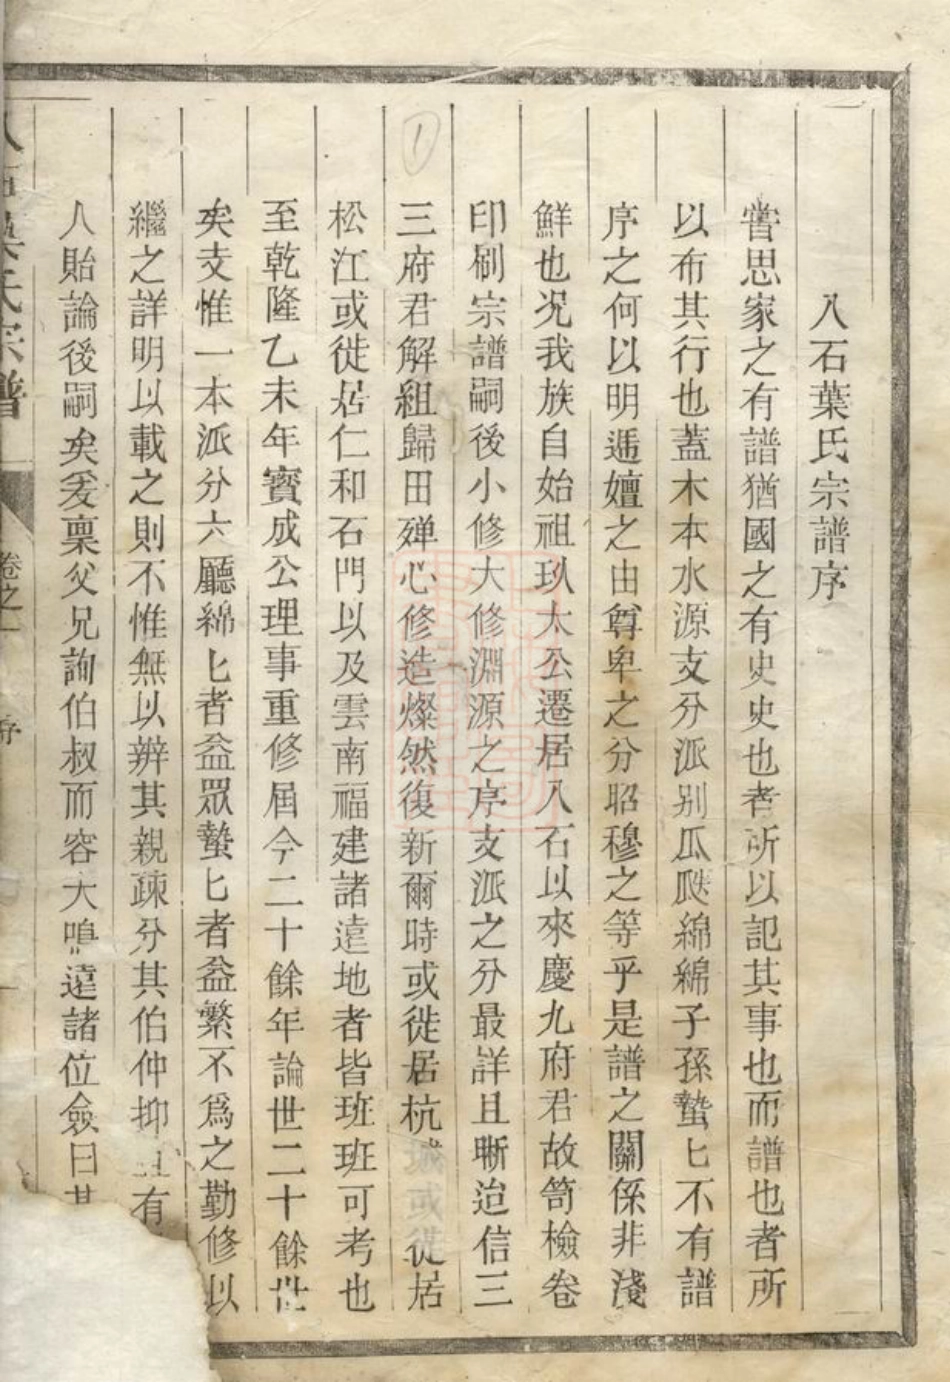 八石葉氏宗譜序
嘗思家之有譜猶國之有史史也者所以記其事也而譜也者所
以布其行也蓋木本水源支分派別瓜瓞綿綿子孫蟄匕不有譜
序之何以明遞嬗之由尊卑之分昭穆之等乎是譜之關係非淺
鮮也况我族自始祖玖太公遷居入石以來慶九府君故笥檢卷
印刷宗譜嗣後小修大修淵源之序支派之分最詳且晰迨信三
三府君解組歸田殫心修造燦然復新爾時或徙居杭城或徙居
松江或徙居仁和石門以及雲南福建諸遠地者皆班班可考也
至乾隆乙未年賓成公理事重修屆今二十餘年論世二十餘世
矣支惟一本派分六廳綿匕者益眾蟄匕者益繁不爲之勤修以
繼之詳明以載之則不惟無以辨其親疎分其伯仲抑且有
人貽論後嗣矣爰稟父兄詢伯叔而容大鳴遠諸位僉曰其
宗譜
卷之一
序
1